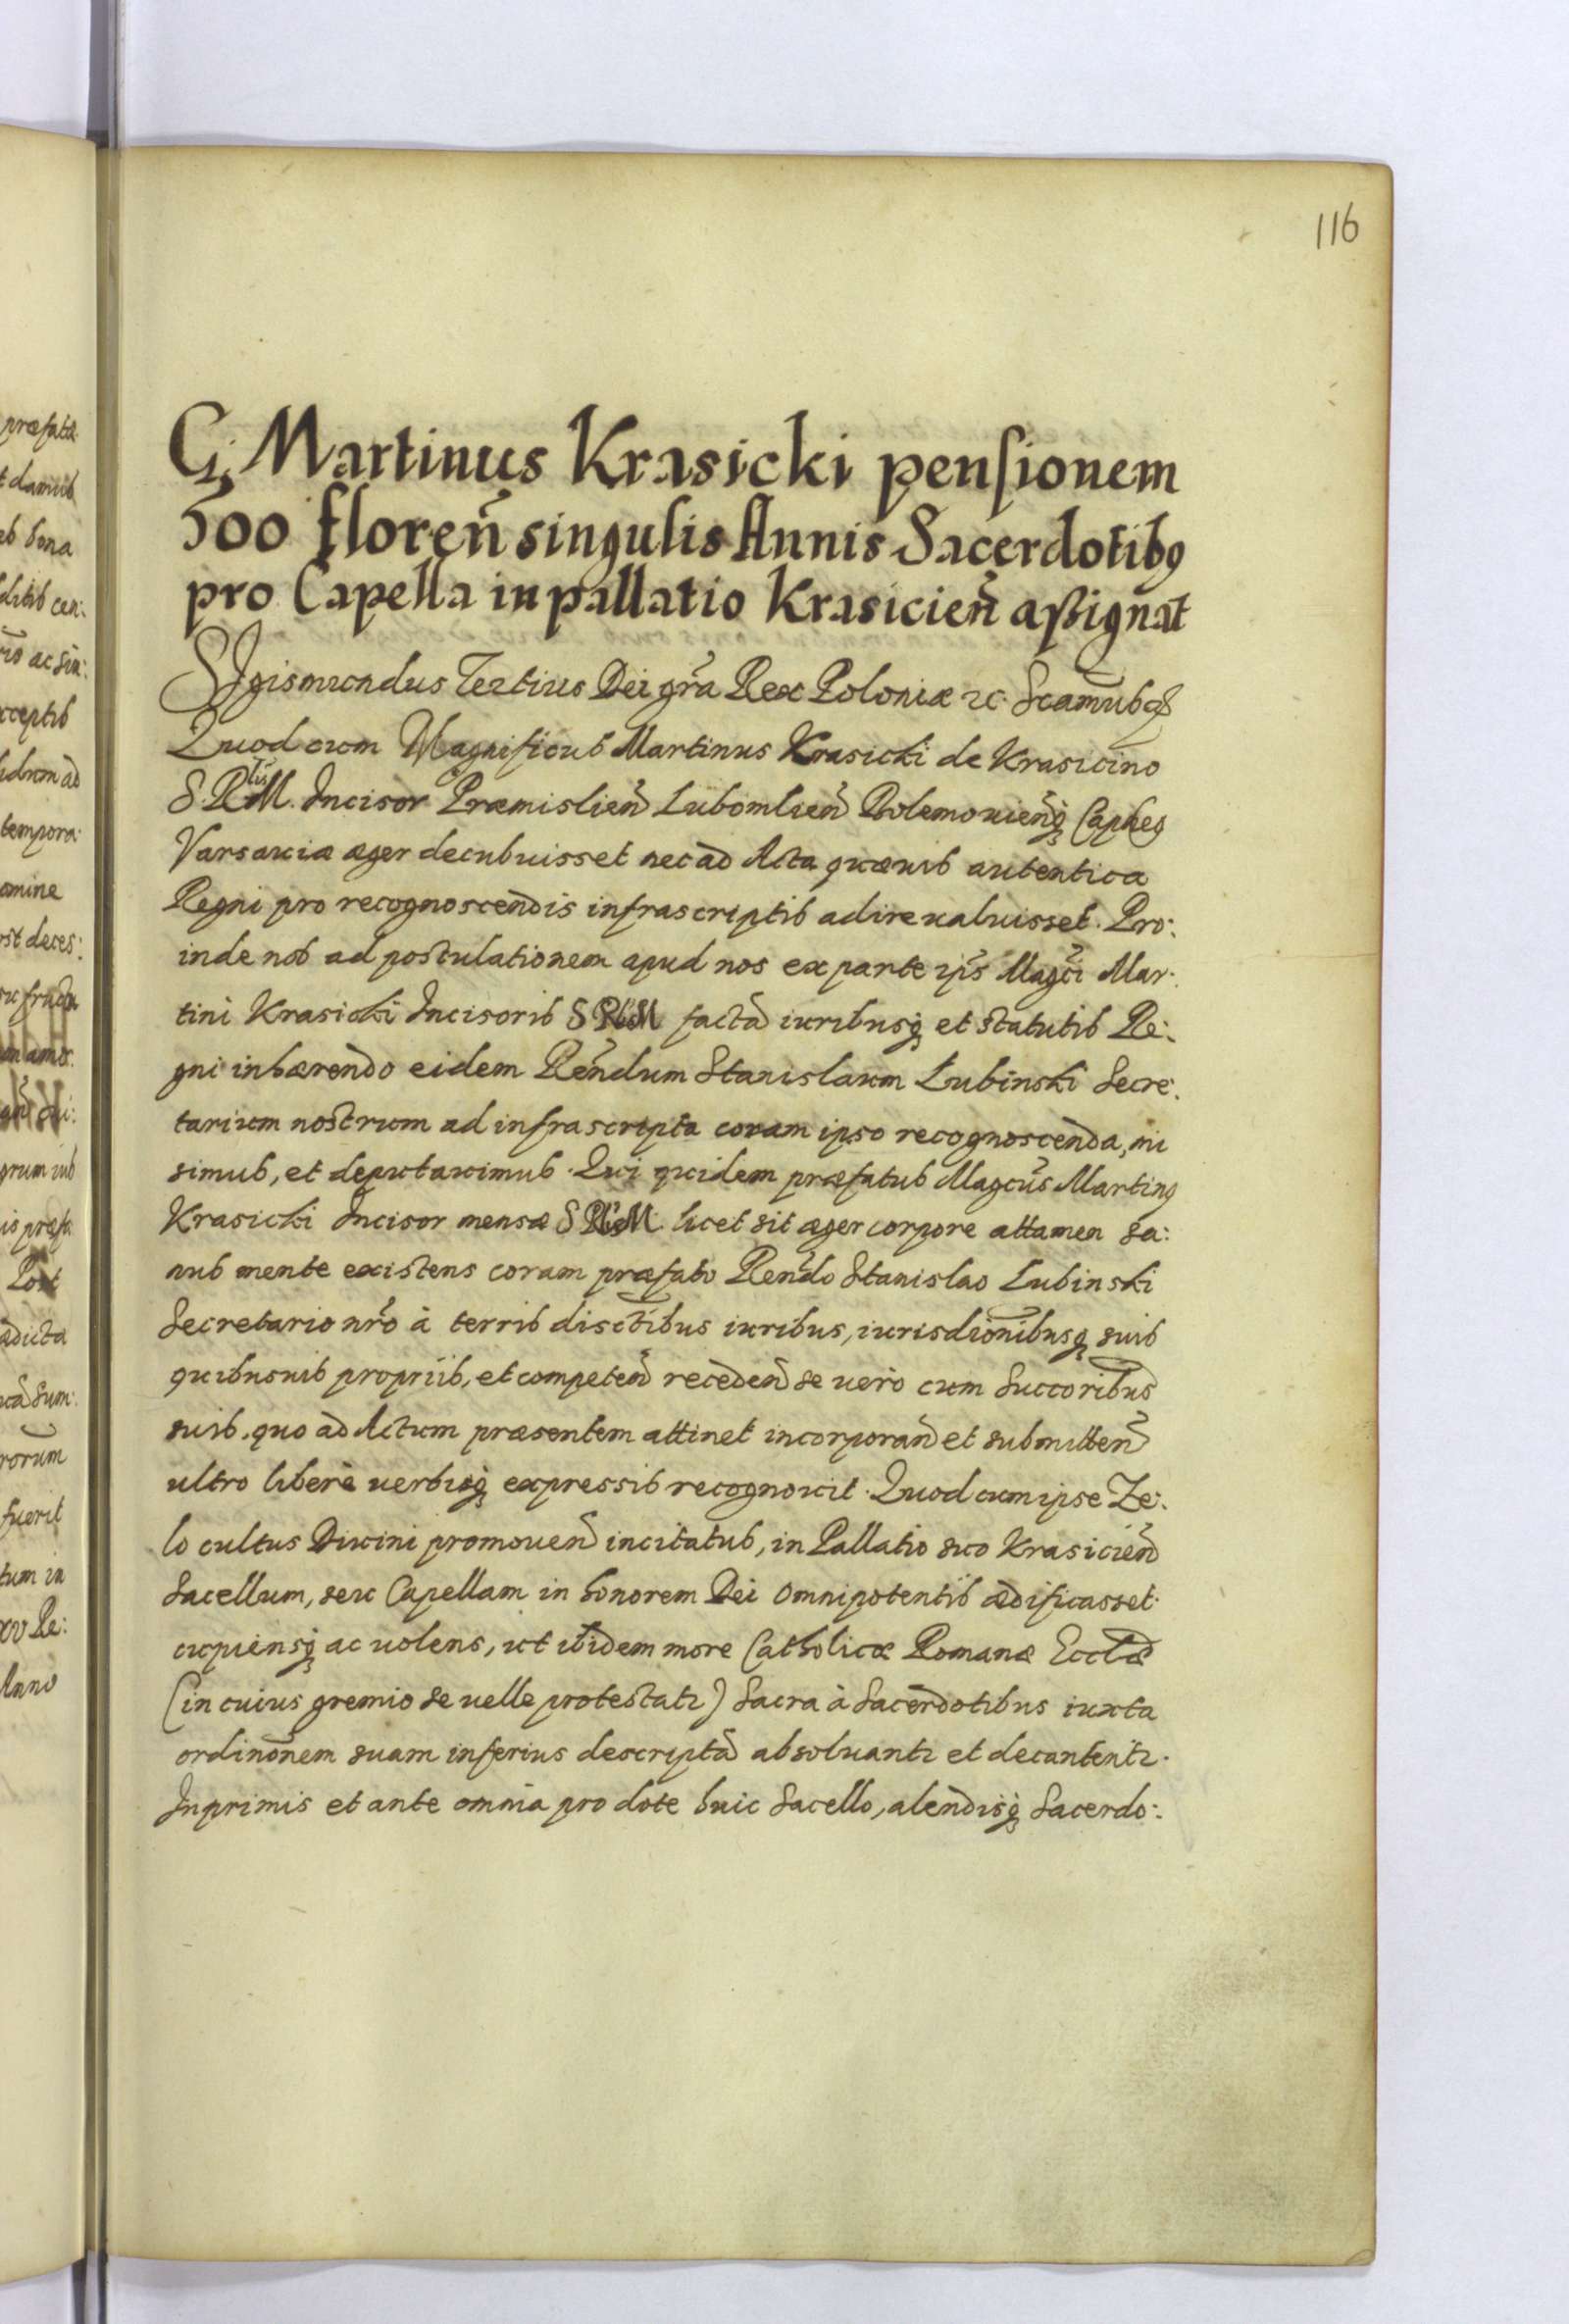 116
G. Martinus Krasicki pensionem
500 floreñ singulis Annis Sacerdotibꝰ
pro Capella in pallatio Krasicieñ assignat
Sigismundus Tertius Dei gra̅ Rex Poloniæ ꝛc. Scamus
Quod cum Magnificus Martinus Krasicki de Krasicino
S. R̅lis M. Incisor Præmislien̅ Lubomlien̅ Bolemouien̅q̨ Cap̅neꝰ
Varsauiæ æger decubuisset nec ad Acta quæuis autentica
Regni pro recognoscendis infrascriptis adire ualuisset. Pro:
inde nos ad postulationem apud nos ex parte ip̅s Mag̅ci Mar:
tini Krasicki Incisoris S RlisM facta̅ iuribusq̨ et statutis Re:
gni inhærendo eidem Re̅ndum Stanislaum Lubinski Secre:
tarium nostrum ad infrascripta coram ipso recognoscenda, mi
simus, et deputauimus. Qui quidem præfatus Magcu̅s Martinꝰ
Krasicki Incisor mensæ S RlisM. licet sit æger corpore attamen sa:
nus mente existens coram præfato Ren̅do Stanislao Lubinski
Secretario nr̅o à terris disctibus iuribus, iurisdi̅onibusq̨ suis
quibusuis propriis, et competen̅ receden̅ se uerò cum Succoribus
suis, quo ad Actum præsentem attinet incorporan̅ et submitten̅
ultro liberè uerbisq̨ expressis recognouit. Quod cum ipse Ze:
lo cultus Diuini promouen̅ incitatus, in Pallatio suo Krasicien̅
Sacellum, seu Capellam in honorem Dei Omnipotentis ædificasset
cupiensq̨ ac uolens, ut ibidem more Catholicæ Romanæ Eccl̅æ
(in cuius gremio se uelle protestatr) Sacra à Sacerdotibus iuxta
ordin̅onem suam inferius descripta̅ absoluantr et decantentr.
Inprimis et ante omnia pro dote huic Sacello, alendisq̨ Sacerdo: